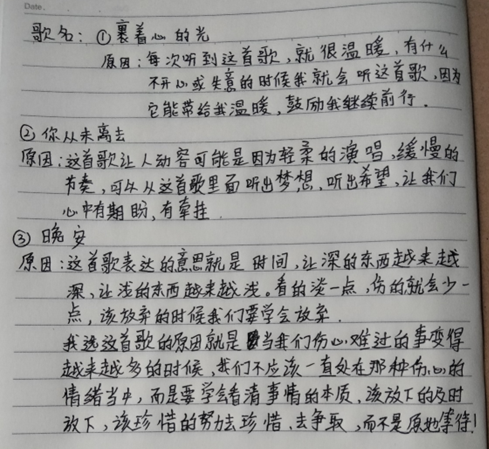 Date.
歌名：①裹着心的光
原因：每次听到这首歌，就很温暖，有什么
不开心或失意的时候我就会听这首歌，因为
它能带给我温暖，鼓励我继续前行.
②你从未离去
原因：这首歌让人动容可能是因为轻柔的演唱，缓慢的
节奏，可以从这首歌里面听出梦想，听出希望，让我们
心中有期盼，有牵挂.
③晚安
原因：这首歌表达的意思就是时间，让深的东西越来越
深，让浅的东西越来越浅。看的淡一点，伤的就会少一
点，该放弃的时候我们要学会放弃.
我选这首歌的原因就是当我们伤心难过的事变得
越来越多的时候，我们不应该一直处在那种伤心的
情绪当中，而是要学会看清事情的本质，该放下的及时
放下，该珍惜的努力去珍惜，去争取，而不是原地等待！